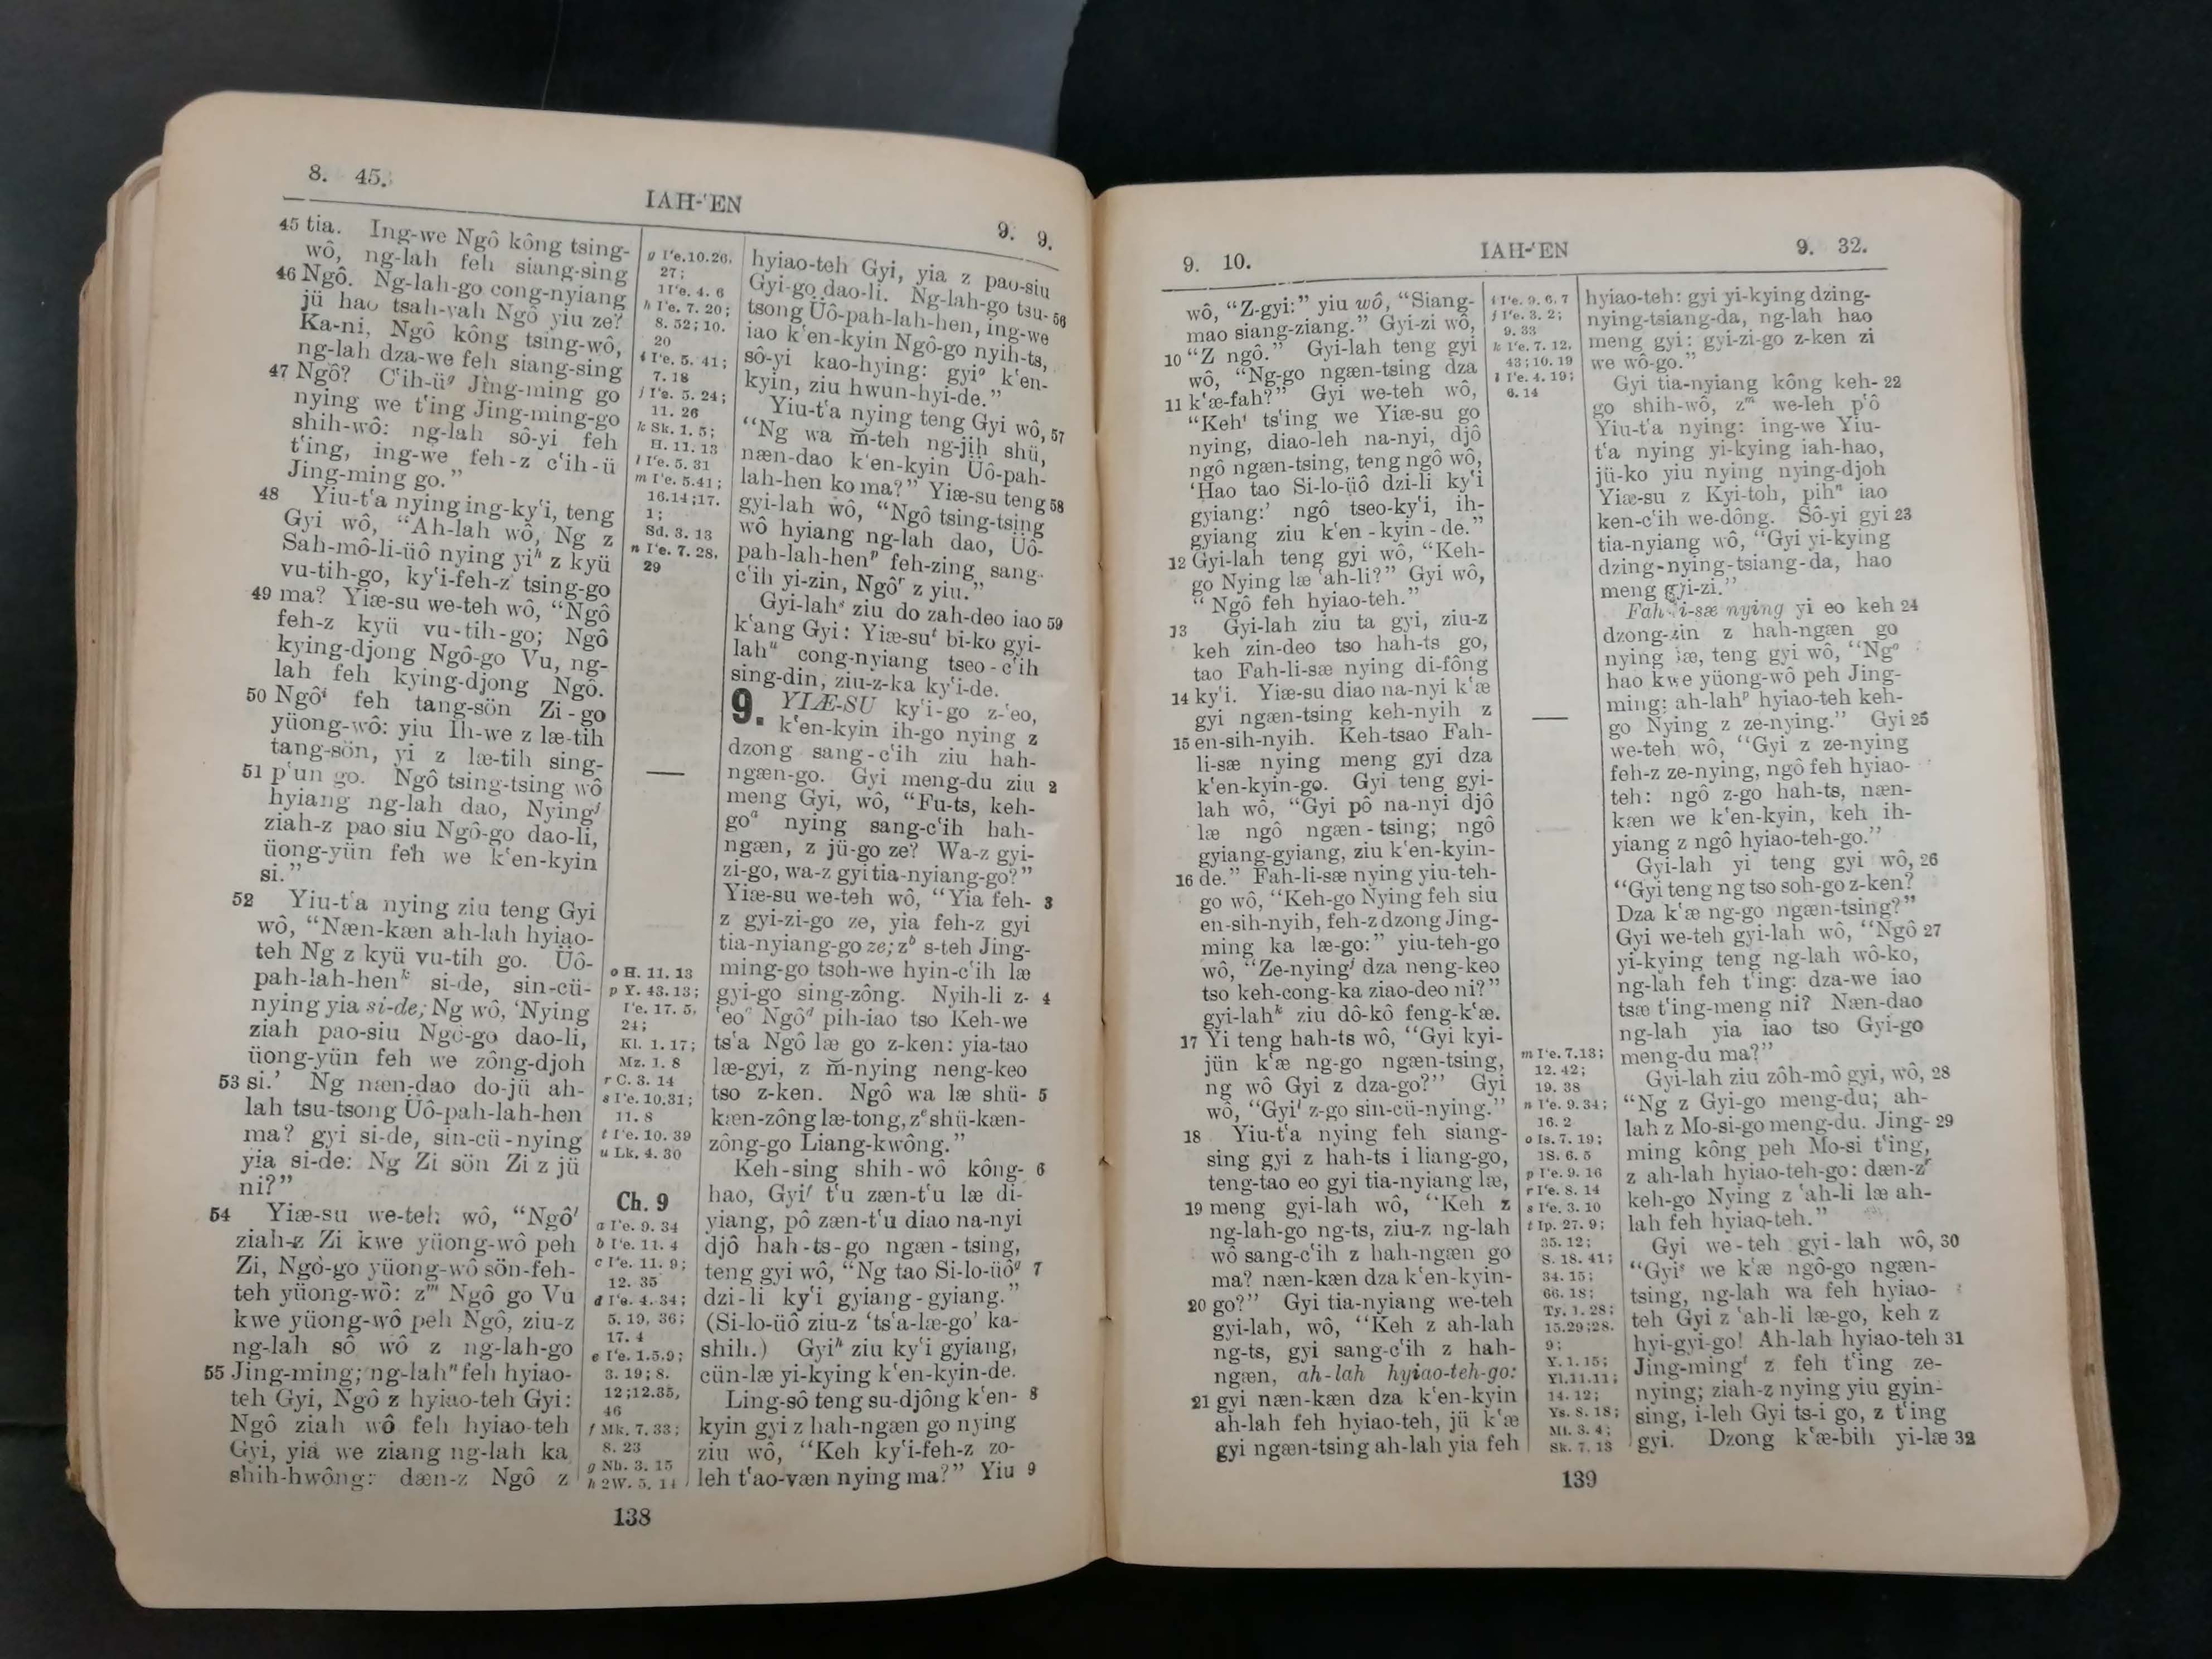 8. 45.
IAH-‘EN
9. 9.
45 tia. Ing-we Ngô kông tsing-
wô, ng-lah feh siang-sing
46 Ngô. Ng-lah-go cong-nyiang
jü hao tsah-yah Ngô yiu ze?
Ka-ni, Ngô kông tsing-wô,
ng-lah dza-we feh siang-sing
47 Ngô? C‘ih-üᵍ Jing-ming go
nying we t‘ing Jing-ming-go
shih-wô: ng-lah sô-yi feh
t‘ing, ing-we feh-z c‘ih-ü
Jing-ming go.”
48 Yiu-t‘a nying ing-ky‘i, teng
Gyi wô, “Ah-lah wô, Ng z
Sah-mô-li-üô nying yiʰ z kyü
vu-tih-go, ky‘i-feh-z tsing-go
49 ma? Yiæ-su we-teh wô, “Ngô
feh-z kyü vu-tih-go; Ngô
kying-djong Ngô-go Vu, ng-
lah feh kying-djong Ngô.
50 Ngôⁱ feh tang-sön Zi-go
yüong-wô: yiu Ih-we z læ-tih
tang-sön, yi z læ-tih sing-
51 p‘un go. Ngô tsing-tsing wô
hyiang ng-lah dao, Nyingʲ
ziah-z pao siu Ngô-go dao-li,
üong-yün feh we k‘en-kyin
si.”
52 Yiu-t‘a nying ziu teng Gyi
wô, “Næn-kæn ah-lah hyiao-
teh Ng z kyü vu-tih go. Üô-
pah-lah-henᵏ si-de, sin-cü-
nying yia si-de; Ng wô, ‘Nying
ziah pao-siu Ngô-go dao-li,
üong-yün feh we zông-djoh
53 si.’ Ng næn-dao do-jü ah-
lah tsu-tsong Üô-pah-lah-hen
ma? gyi si-de, sin-cü-nying
yia si-de: Ng Zi sön Zi z jü
ni?”
54 Yiæ-su we-teh wô, “Ngôˡ
ziah-z Zi kwe yüong-wô peh
Zi, Ngô-go yüong-wô sön-feh-
teh yüong-wô: zᵐ Ngô go Vu
kwe yüong-wô peh Ngô, ziu-z
ng-lah sô wô z ng-lah-go
55 Jing-ming; ng-lahⁿ feh hyiao-
teh Gyi, Ngô z hyiao-teh Gyi:
Ngô ziah wô feh hyiao-teh
Gyi, yia we ziang ng-lah ka
shih-hwông: dæn-z Ngô z
g I‘e.10.26,
27;
1 I‘e. 4. 6
h I‘e. 7. 20;
8. 52; 10.
20
i I‘e. 5. 41;
7. 18
j I‘e. 5. 24;
11. 26
k Sk. 1. 5;
H. 11. 13
l I‘e. 5. 31
m I‘e. 5.41;
16.14;17.
1;
Sd. 3. 13
n I‘e. 7. 28,
29
o H. 11. 13
p Y. 43. 13;
I‘e. 17. 5,
24;
Kl. 1. 17;
Mz. 1. 8
r C. 3. 14
s I‘e. 10.31;
11. 8
t I‘e. 10. 39
u Lk. 4. 30
Ch. 9
a I‘e. 9. 34
b I‘e. 11. 4
c I‘e. 11. 9;
12. 35
d I‘e. 4. 34;
5. 19, 36;
17. 4
e I‘e. 1.5.9;
3. 19; 8.
12;12.35,
46
f Mk. 7. 33;
8. 23
g Nh. 3. 15
h 2W. 5. 14
hyiao-teh Gyi, yia z pao-siu
Gyi-go dao-li. Ng-lah-go tsu- 56
tsong Üô-pah-lah-hen, ing-we
iao k‘en-kyin Ngô-go nyih-ts,
sô-yi kao-hying: gyiᵒ k‘en-
kyin, ziu hwun-hyi-de.”
Yiu-t‘a nying teng Gyi wô, 57
“Ng wa m̆-teh ng-jih shü,
næn-dao k‘en-kyin Üô-pah-
lah-hen ko ma?” Yiæ-su teng 58
gyi-lah wô, “Ngô tsing-tsing
wô hyiang ng-lah dao, Üô-
pah-lah-henᵖ feh-zing sang-
c‘ih yi-zin, Ngôʳ z yiu.”
Gyi-lahˢ ziu do zah-deo iao 59
k‘ang Gyi: Yiæ-suᵗ bi-ko gyi-
lahᵘ cong-nyiang tseo-c‘ih
sing-din, ziu-z-ka ky‘i-de.
9. YIÆ-SU ky‘i-go z-‘eo,
k‘en-kyin ih-go nying z
dzong sang-c‘ih ziu hah-
ngæn-go. Gyi meng-du ziu 2
meng Gyi, wô, “Fu-ts, keh-
goᵃ nying sang-c‘ih hah-
ngæn, z jü-go ze? Wa-z gyi-
zi-go, wa-z gyi tia-nyiang-go?”
Yiæ-su we-teh wô, “Yia feh- 3
z gyi-zi-go ze, yia feh-z gyi
tia-nyiang-go ze; zᵇ s-teh Jing-
ming-go tsoh-we hyin-c‘ih læ
gyi-go sing-zông. Nyih-li z- 4
‘eoᶜ Ngôᵈ pih-iao tso Keh-we
ts‘a Ngô læ go z-ken: yia-tao
læ-gyi, z m̆-nying neng-keo
tso z-ken. Ngô wa læ shü- 5
kæn-zông læ-tong, zᵉ shü-kæn-
zông-go Liang-kwông.”
Keh-sing shih-wô kông- 6
hao, Gyiᶠ t‘u zæn-t‘u læ di-
yiang, pô zæn-t‘u diao na-nyi
djô hah-ts-go ngæn-tsing,
teng gyi wô, “Ng tao Si-lo-üôᵍ 7
dzi-li ky‘i gyiang-gyiang.”
(Si-lo-üô ziu-z ‘ts‘a-læ-go’ ka-
shih.) Gyiʰ ziu ky‘i gyiang,
cün-læ yi-kying k‘en-kyin-de.
Ling-sô teng su-djông k‘en- 8
kyin gyi z hah-ngæn go nying
ziu wô, “Keh ky‘i-feh-z zo-
leh t‘ao-væn nying ma?” Yiu 9
138
9. 10.
IAH-‘EN
9. 32.
wô, “Z-gyi:” yiu wô, “Siang-
mao siang-ziang.” Gyi-zi wô,
10 “Z ngô.” Gyi-lah teng gyi
wô, “Ng-go ngæn-tsing dza
11 k‘æ-fah?” Gyi we-teh wô,
“Kehⁱ ts‘ing we Yiæ-su go
nying, diao-leh na-nyi, djô
ngô ngæn-tsing, teng ngô wô,
‘Hao tao Si-lo-üô dzi-li ky‘i
gyiang:’ ngô tseo-ky‘i, ih-
gyiang ziu k‘en-kyin-de.”
12 Gyi-lah teng gyi wô, “Keh-
go Nying læ ‘ah-li?” Gyi wô,
“Ngô feh hyiao-teh.”
13 Gyi-lah ziu ta gyi, ziu-z
keh zin-deo tso hah-ts go,
tao Fah-li-sæ nying di-fông
14 ky‘i. Yiæ-su diao na-nyi k‘æ
gyi ngæn-tsing keh-nyih z
15 en-sih-nyih. Keh-tsao Fah-
li-sæ nying meng gyi dza
k‘en-kyin-go. Gyi teng gyi-
lah wô, “Gyi pô na-nyi djô
læ ngô ngæn-tsing; ngô
gyiang-gyiang, ziu k‘en-kyin-
16 de.” Fah-li-sæ nying yiu-teh-
go wô, “Keh-go Nying feh siu
en-sih-nyih, feh-z dzong Jing-
ming ka læ-go:” yiu-teh-go
wô, “Ze-nyingʲ dza neng-keo
tso keh-cong-ka ziao-deo ni?”
gyi-lahᵏ ziu dô-kô feng-k‘æ.
17 Yi teng hah-ts wô, “Gyi kyi-
jün k‘æ ng-go ngæn-tsing,
ng wô Gyi z dza-go?” Gyi
wô, “Gyiˡ z-go sin-cü-nying.”
18 Yiu-t‘a nying feh siang-
sing gyi z hah-ts i liang-go,
teng-tao eo gyi tia-nyiang læ,
19 meng gyi-lah wô, “Keh z
ng-lah-go ng-ts, ziu-z ng-lah
wô sang-c‘ih z hah-ngæn go
ma? næn-kæn dza k‘en-kyin-
20 go?” Gyi tia-nyiang we-teh
gyi-lah, wô, “Keh z ah-lah
ng-ts, gyi sang-c‘ih z hah-
ngæn, ah-lah hyiao-teh-go:
21 gyi næn-kæn dza k‘en-kyin
ah-lah feh hyiao-teh, jü k‘æ
gyi ngæn-tsing ah-lah yia feh
i I‘e. 9. 6. 7
j I‘e. 3. 2;
9. 33
k I‘e. 7. 12,
43; 10. 19
l I‘e. 4. 19;
6. 14
m I‘e. 7.13;
12. 42;
19. 38
n I‘e. 9.34;
16. 2
o Is. 7. 19;
1S. 6. 5
p I‘e. 9. 16
r I‘e. 8. 14
s I‘e. 3. 10
t Ip. 27. 9;
35. 12;
S. 18. 41;
34. 15;
66. 18;
Ty. 1. 28;
15.29;28.
9;
Y. 1. 15;
Yl.11.11;
14. 12;
Ys. 8. 18;
Mi. 3. 4;
Sk. 7. 13
hyiao-teh: gyi yi-kying dzing-
nying-tsiang-da, ng-lah hao
meng gyi: gyi-zi-go z-ken zi
we wô-go.”
Gyi tia-nyiang kông keh- 22
go shih-wô, zᵐ we-leh p‘ô
Yiu-t‘a nying: ing-we Yiu-
t‘a nying yi-kying iah-hao,
jü-ko yiu nying nying-djoh
Yiæ-su z Kyi-toh, pihⁿ iao
ken-c‘ih we-dông. Sô-yi gyi 23
tia-nyiang wô, “Gyi yi-kying
dzing-nying-tsiang-da, hao
meng gyi-zi.”
Fah-li-sæ nying yi eo keh 24
dzong-zin z hah-ngæn go
nying læ, teng gyi wô, “Ngᵒ
hao kwe yüong-wô peh Jing-
ming; ah-lahᵖ hyiao-teh keh-
go Nying z ze-nying.” Gyi 25
we-teh wô, “Gyi z ze-nying
feh-z ze-nying, ngô feh hyiao-
teh: ngô z-go hah-ts, næn-
kæn we k‘en-kyin, keh ih-
yiang z ngô hyiao-teh-go.”
Gyi-lah yi teng gyi wô, 26
“Gyi teng ng tso soh-go z-ken?
Dza k‘æ ng-go ngæn-tsing?”
Gyi we-teh gyi-lah wô, “Ngô 27
yi-kying teng ng-lah wô-ko,
ng-lah feh t‘ing: dza-we iao
tsæ t‘ing-meng ni? Næn-dao
ng-lah yia iao tso Gyi-go
meng-du ma?”
Gyi-lah ziu zôh-mô gyi, wô, 28
“Ng z Gyi-go meng-du; ah-
lah z Mo-si-go meng-du. Jing- 29
ming kông peh Mo-si t‘ing,
z ah-lah hyiao-teh-go: dæn-zʳ
keh-go Nying z ‘ah-li læ ah-
lah feh hyiao-teh.”
Gyi we-teh gyi-lah wô, 30
“Gyiˢ we k‘æ ngô-go ngæn-
tsing, ng-lah wa feh hyiao-
teh Gyi z ‘ah-li læ-go, keh z
hyi-gyi-go! Ah-lah hyiao-teh 31
Jing-mingᵗ z feh t‘ing ze-
nying; ziah-z nying yiu gyin-
sing, i-leh Gyi ts-i go, z t‘ing
gyi. Dzong k‘æ-bih yi-læ 32
139